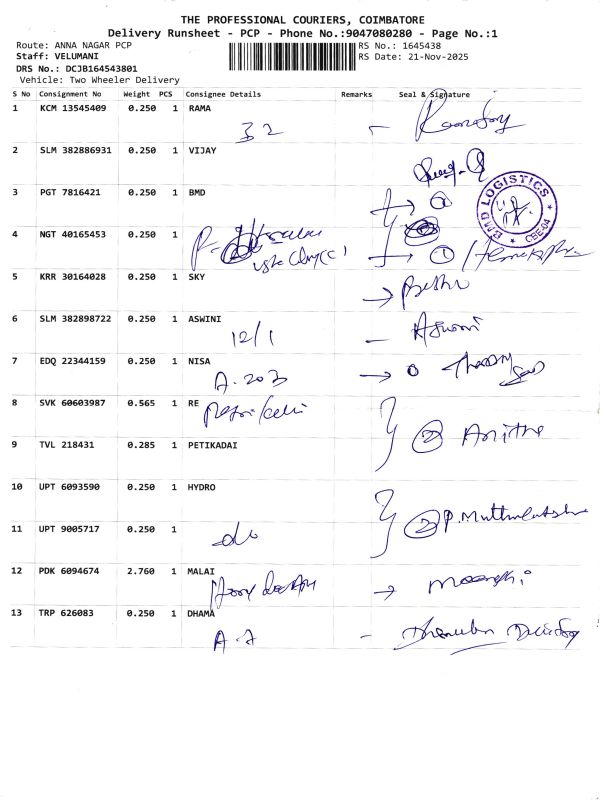 THE PROFESSIONAL COURIERS, COIMBATORE
Delivery Runsheet - PCP - Phone No.:9047080280 - Page No.:1
Route: ANNA NAGAR PCP RS No.: 1645438
Staff: VELUMANI RS Date: 21-Nov-2025
DRS No.: DCJB164543801
Vehicle: Two Wheeler Delivery
S No Consignment No Weight PCS Consignee Details Remarks Seal & Signature
1 KCM 13545409 0.250 1 RAMA
32
2 SLM 382886931 0.250 1 VIJAY
3 PGT 7816421 0.250 1 BMD
BMD LOGISTICS
CBE-04
4 NGT 40165453 0.250 1
5 KRR 30164028 0.250 1 SKY
6 SLM 382898722 0.250 1 ASWINI
12/1 Aswini
7 EDQ 22344159 0.250 1 NISA
A-203
8 SVK 60603987 0.565 1 RE
2 Anitha
9 TVL 218431 0.285 1 PETIKADAI
10 UPT 6093590 0.250 1 HYDRO
2 P. Muthulakshmi
11 UPT 9005717 0.250 1
do
12 PDK 6094674 2.760 1 MALAI
13 TRP 626083 0.250 1 DHAMA
A-7